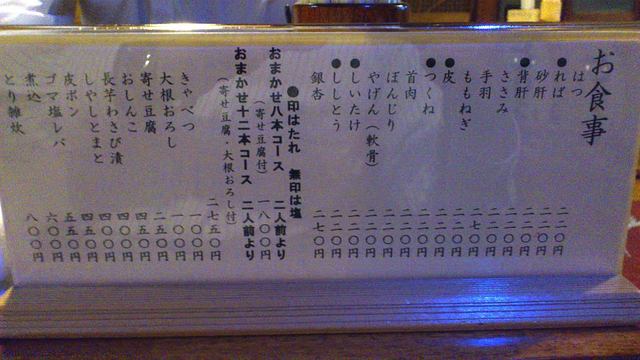 お食事
はつ 二二〇円
●れば 二二〇円
砂肝 二二〇円
●背肝 二二〇円
ささみ
手羽
ももねぎ 二二〇円
●皮 二二〇円
●つくね 二二〇円
首肉 二二〇円
ぼんじり 二二〇円
やげん（軟骨） 二二〇円
●しいたけ 二二〇円
●ししとう 二二〇円
銀杏 二七〇円
●印はたれ 無印は塩
おまかせ八本コース 二人前より
（寄せ豆腐付） 一八〇〇円
おまかせ十二本コース 二人前より
（寄せ豆腐・大根おろし付）
二七五〇円
きゃべつ 一〇〇円
大根おろし 一〇〇円
寄せ豆腐 二五〇円
おしんこ 四五〇円
長芋わさび漬 四〇〇円
しやしとまと 四五〇円
皮ポン 四五〇円
ゴマ塩レバ 五五〇円
煮込 六〇〇円
とり雑炊 八〇〇円